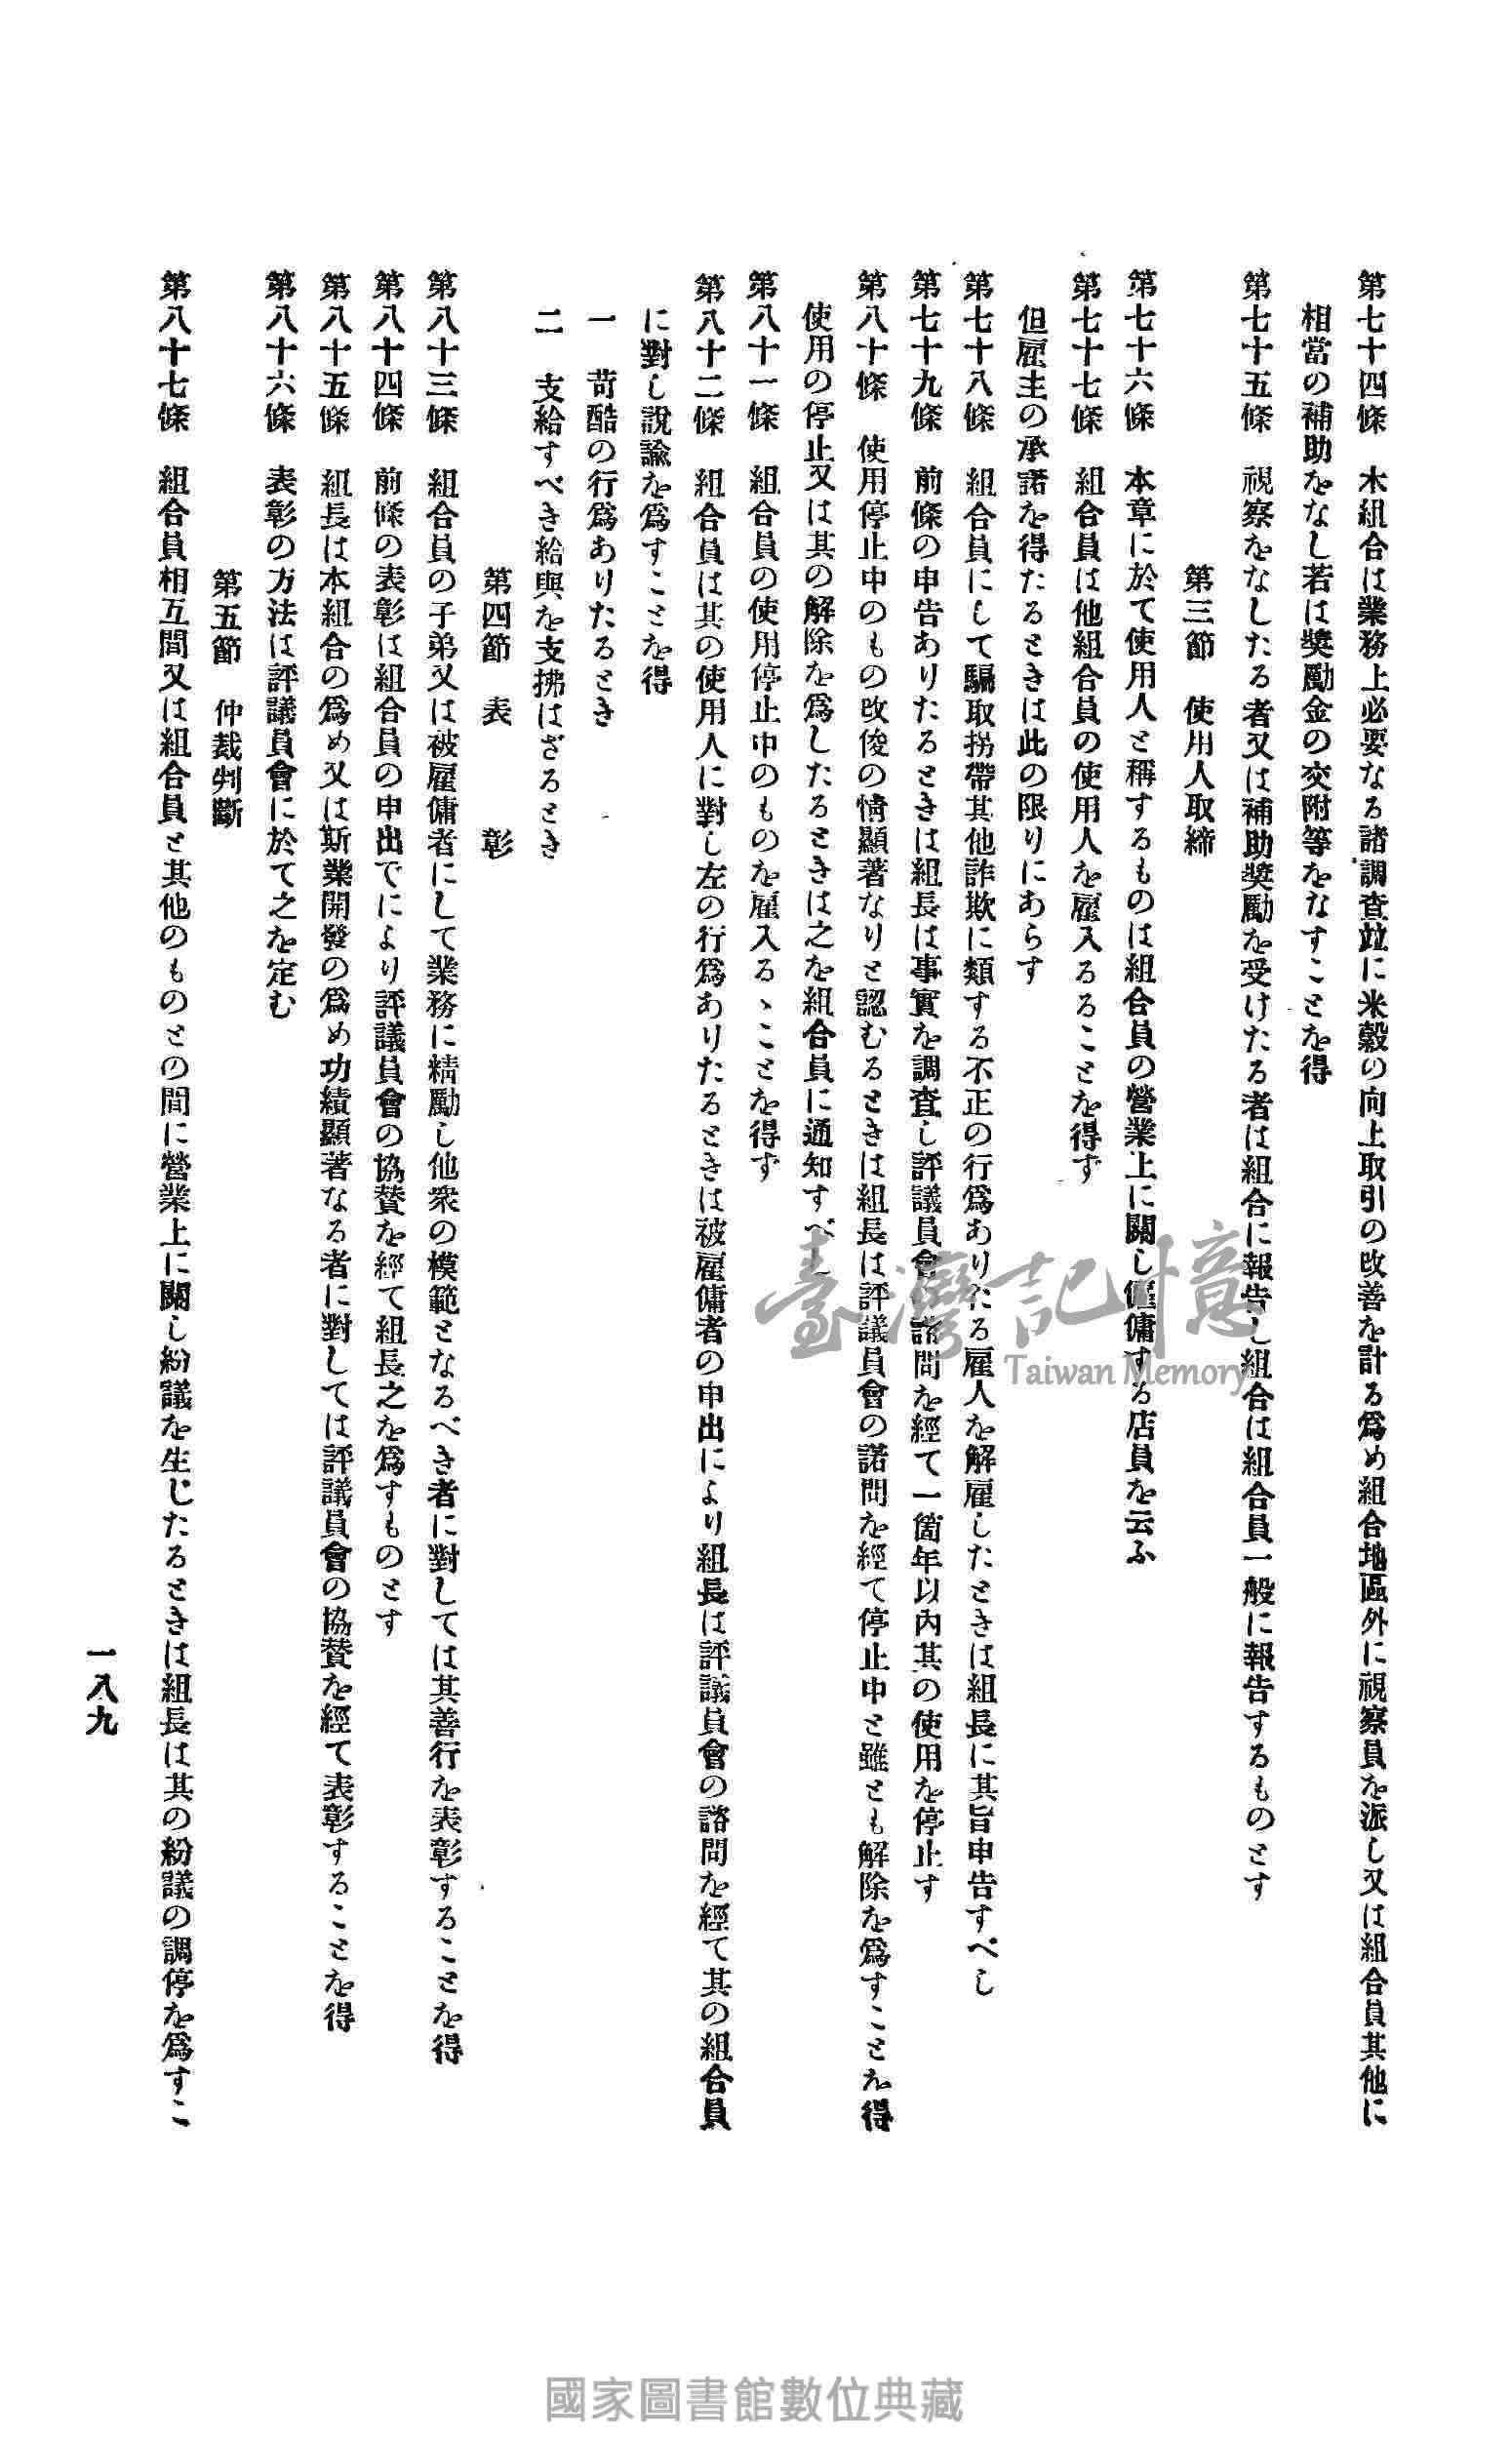 第七十四條　本組合は業務上必要なる諸調査竝に米穀の向上取引の改善を計る爲め組合地區外に視察員を派し又は組合員其他に
相當の補助をなし若は奬勵金の交附等をなすことを得
第七十五條　視察をなしたる者又は補助奬勵を受けたる者は組合に報告し組合は組合員一般に報告するものとす
第三節　使用人取締
第七十六條　本章に於て使用人と稱するものは組合員の營業上に關し傭傭する店員を云ふ
第七十七條　組合員は他組合員の使用人を雇入るることを得ず
但雇主の承諾を得たるときは此の限りにあらす
第七十八條　組合員にして騙取拐帶其他詐欺に類する不正の行爲ありたる雇人を解雇したときは組長に其旨申告すべし
第七十九條　前條の申告ありたるときは組長は事實を調査し評議員會の諮問を經て一箇年以內其の使用を停止す
第八十條　使用停止中のもの改俊の情顯著なりと認むるときは組長は評議員會の諮問を經て停止中と雖とも解除を爲すことを得
使用の停止又は其の解除を爲したるときは之を組合員に通知すべし
第八十一條　組合員の使用停止中のものを雇入るゝことを得ず
第八十二條　組合員は其の使用人に對し左の行爲ありたるときは被雇傭者の申出により組長は評議員會の諮問を經て其の組合員
に對し說諭を爲すことを得
一　苛酷の行爲ありたるとき
二　支給すべき給與を支拂はざるとき
第四節　表　　彰
第八十三條　組合員の子弟又は被雇傭者にして業務に精勵し他衆の模範となるべき者に對しては其善行を表彰することを得
第八十四條　前條の表彰は組合員の申出でにより評議員會の協贊を經て組長之を爲すものとす
第八十五條　組長は本組合の爲め又は斯業開發の爲め功績顯著なる者に對しては評議員會の協贊を經て表彰することを得
第八十六條　表彰の方法は評議員會に於て之を定む
第五節　仲裁判斷
第八十七條　組合員相互間又は組合員と其他のものとの間に營業上に關し紛議を生じたるときは組長は其の紛議の調停を爲すこ
一八九
臺灣記憶
Taiwan Memory
國家圖書館數位典藏